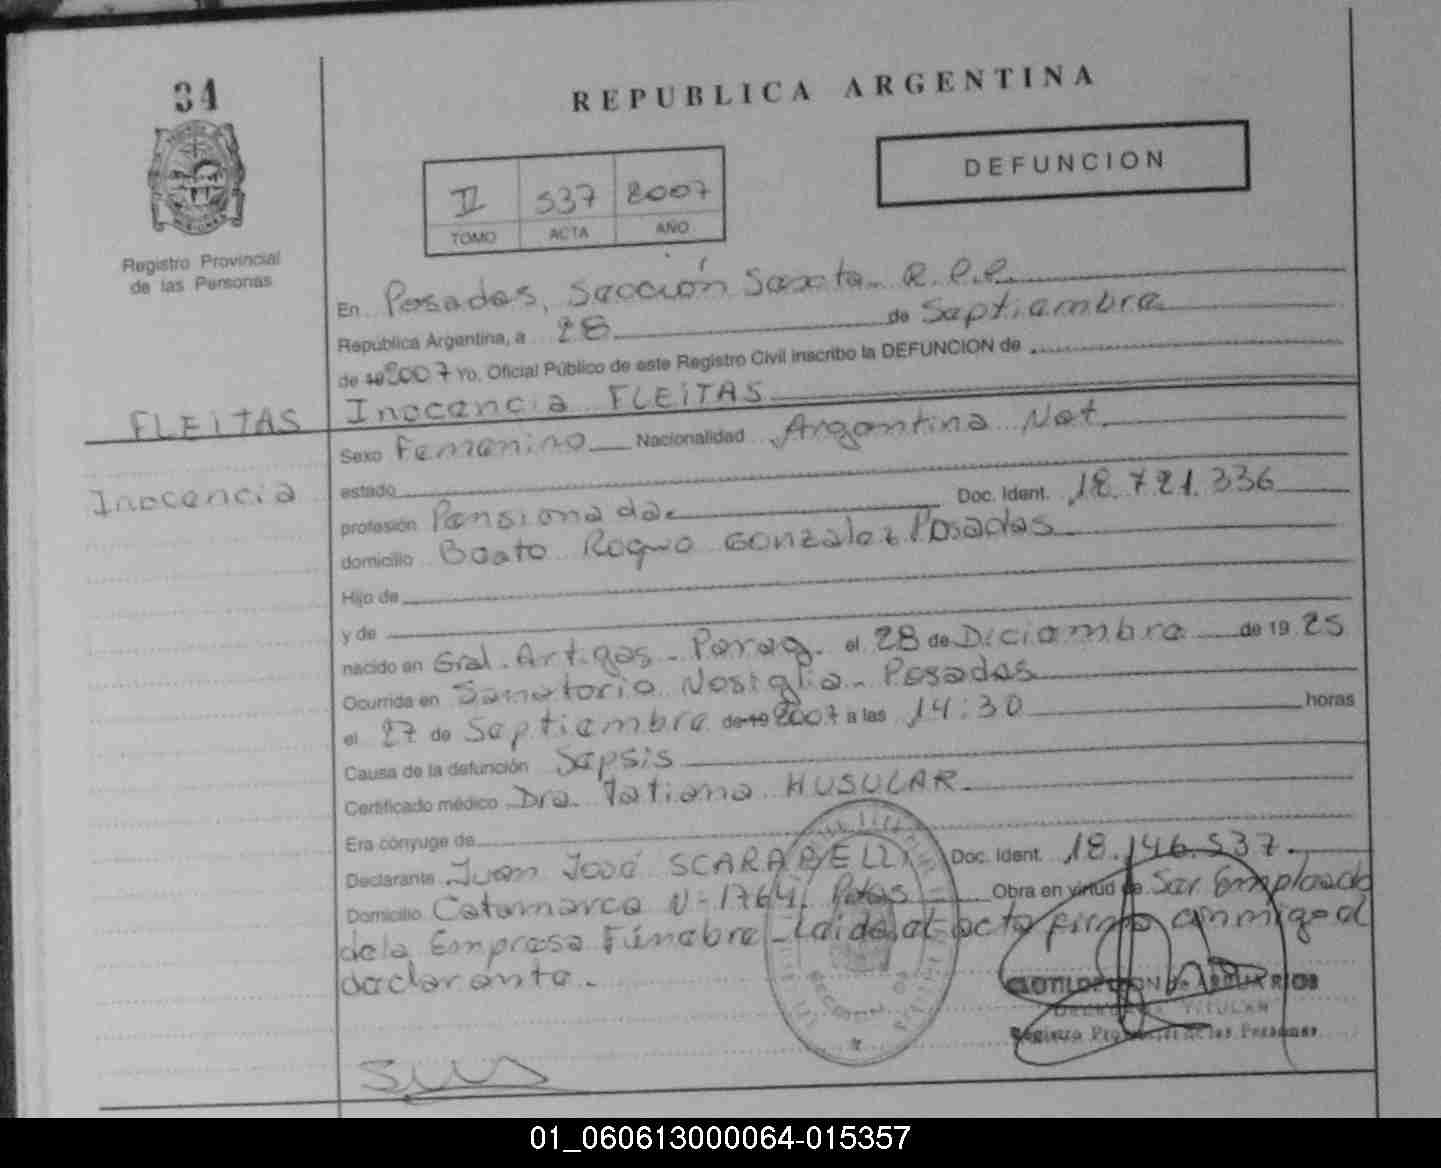 34
REPUBLICA ARGENTINA
DEFUNCION
II 537 2007
TOMO ACTA AÑO
Registro Provincial
de las Personas
En Posadas, Sección Sexta. R.P.P.
Republica Argentina, a 28 de Septiembre
de 19 2007 Yo, Oficial Público de este Registro Civil inscribo la DEFUNCION de
FLEITAS
Inocencia FLEITAS
Sexo Femenino Nacionalidad Argentina Nat.
Inocencia
estado
profesión Pensionada. Doc. Ident. 18.721.336
domicilio Beato Roque Gonzalez Posadas
Hijo de
y de
nacido en Gral. Artigas - Parag. el 28 de Diciembre de 19 25
Ocurrida en Sanatorio Nosiglia - Posadas
el 27 de Septiembre de 19 2007 a las 14:30 horas
Causa de la defunción Sepsis
Certificado médico Dra. Tatiana HUSULAR.
Era cónyuge de
Declarante Juan José SCARABELLI Doc. Ident. 18.146.537.
Domicilio Catamarca N-1764. Pdas Obra en virtud de Ser Empleado
de la Empresa Fúnebre - Leida el acta firma conmigo el
declarante.
TITULAR
Registro Provincial de las Personas
01_060613000064-015357